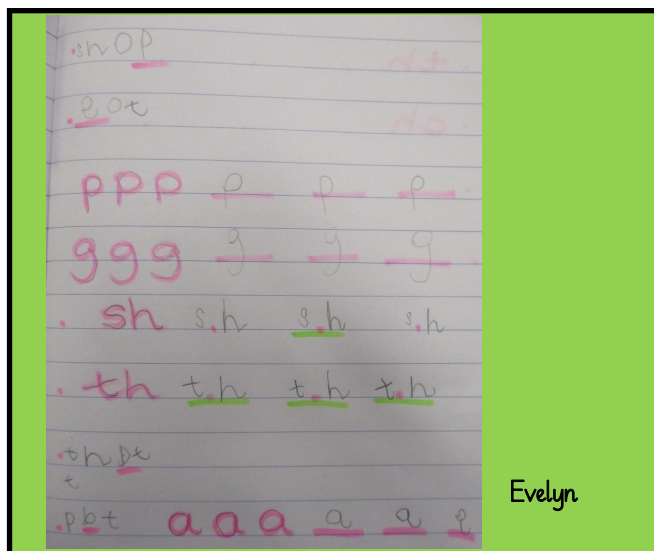 .shop
.got
p p p p p p
g g g g g g
. sh s.h s.h s.h
. th t.h t.h t.h
t
a a a a a
Evelyn